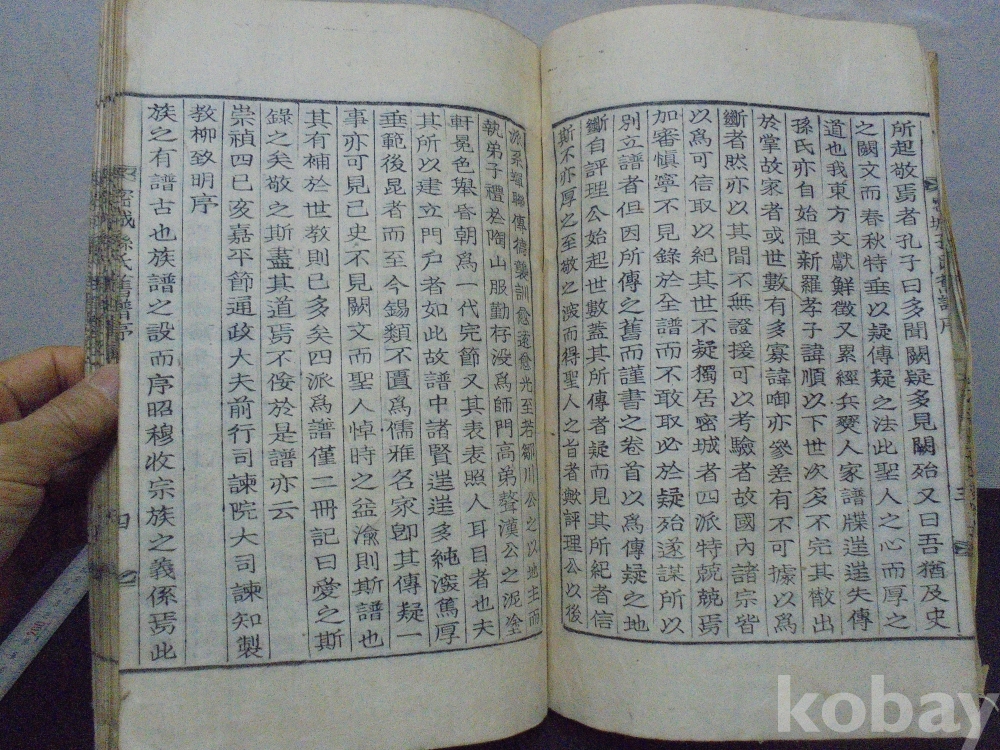 所起敬焉者孔子曰多聞闕疑多見闕殆又曰吾猶及史
之闕文而春秋特垂以疑傳疑之法此聖人之心而厚之
道也我東方文獻鮮徵又累經兵燹人家譜牒𨓏𨓏失傳
孫氏亦自始祖新羅孝子諱順以下世次多不完其散出
於掌故家者或世數有多寡諱啣亦參差有不可據以爲
斷者然亦以其間不無證援可以考驗者故國內諸宗皆
以爲可信取以紀其世不疑獨居密城者四派特兢兢焉
加審愼寧不見錄於全譜而不敢取必於疑殆遂謀所以
別立譜者但因所傳之舊而謹書之卷首以爲傳疑之地
斷自評理公始起世數蓋其所傳者疑而見其所紀者信
斯不亦厚之至敬之深而得聖人之旨者歟評理公以後
派系蟬聯傳襲訓愈遠愈光至若鄒川公之以地主而
執弟子禮於陶山服勤存沒爲師門高弟聱漢公之泥塗
軒冕色擧昏朝爲一代完節又其表表照人耳目者也夫
其所以建立門戶者如此故譜中諸賢𨓏𨓏多純深篤厚
垂範後昆者而至今錫類不匱爲儒雅名家卽其傳疑一
事亦可見已史不見闕文而聖人悼時之益渝則斯譜也
其有補於世敎則已多矣四派爲譜僅二冊記曰愛之斯
錄之矣敬之斯盡其道焉不佞於是譜亦云
崇禎四己亥嘉平節通政大夫前行司諫院大司諫知製
敎柳致明序
族之有譜古也族譜之設而序昭穆收宗族之義係焉此
密城孫氏舊譜序
四